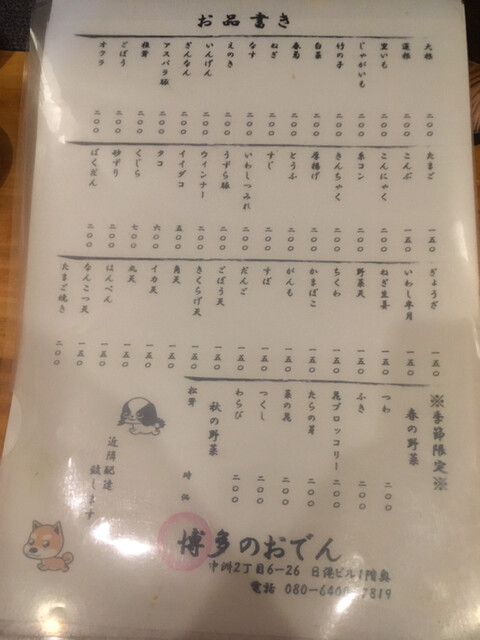 お品書き
大根 二〇〇
蓮根 二〇〇
里いも 二〇〇
じゃがいも 二〇〇
竹の子 二〇〇
白菜 二〇〇
春菊 二〇〇
ねぎ 二〇〇
なす 二〇〇
えのき 二〇〇
いんげん 二〇〇
ぎんなん 二〇〇
アスパラ豚 二〇〇
椎茸 二〇〇
ごぼう 二〇〇
オクラ 二〇〇
たまご 一五〇
こんぶ 一五〇
こんにゃく 二〇〇
糸コン 二〇〇
きんちゃく 二〇〇
厚揚げ 二〇〇
とうふ 二〇〇
すじ 二〇〇
いわしつみれ 二〇〇
うずら豚 二〇〇
ウィンナー 二〇〇
イイダコ 五〇〇
タコ 六〇〇
くじら 七〇〇
砂ずり 二〇〇
ばくだん 二〇〇
ぎょうざ 一五〇
いわし半月 一五〇
ねぎ生姜 一五〇
野菜天 一五〇
ちくわ 一五〇
かまぼこ 一五〇
がんも 一五〇
すぼ 一五〇
だんご 一五〇
ごぼう天 一五〇
きくらげ天 一五〇
角天 一五〇
イカ天 一五〇
丸天 一五〇
はんぺん 一五〇
なんこつ天 一五〇
たまご焼き 二〇〇
※季節限定※
春の野菜
つわ 二〇〇
ふき 二〇〇
芯ブロッコリー 二〇〇
たらの芽 二〇〇
菜の花 二〇〇
つくし 二〇〇
わらび 二〇〇
秋の野菜
松茸 時価
近隣配達
致します
博多のおでん
中洲2丁目6-26 日港ビル1階奥
電話 080-6400-7819